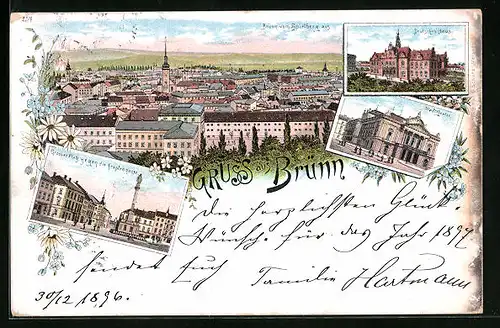 Brünn vom Spielberg aus
Deutsches Haus
Stadttheater
Grosser Platz gegen die Krapfengasse
GRUSS aus Brünn
Die herzlichsten Glück-
Wünsche für das Jahr 1897
sendet Euch Familie Hartmann
30/12 1896.